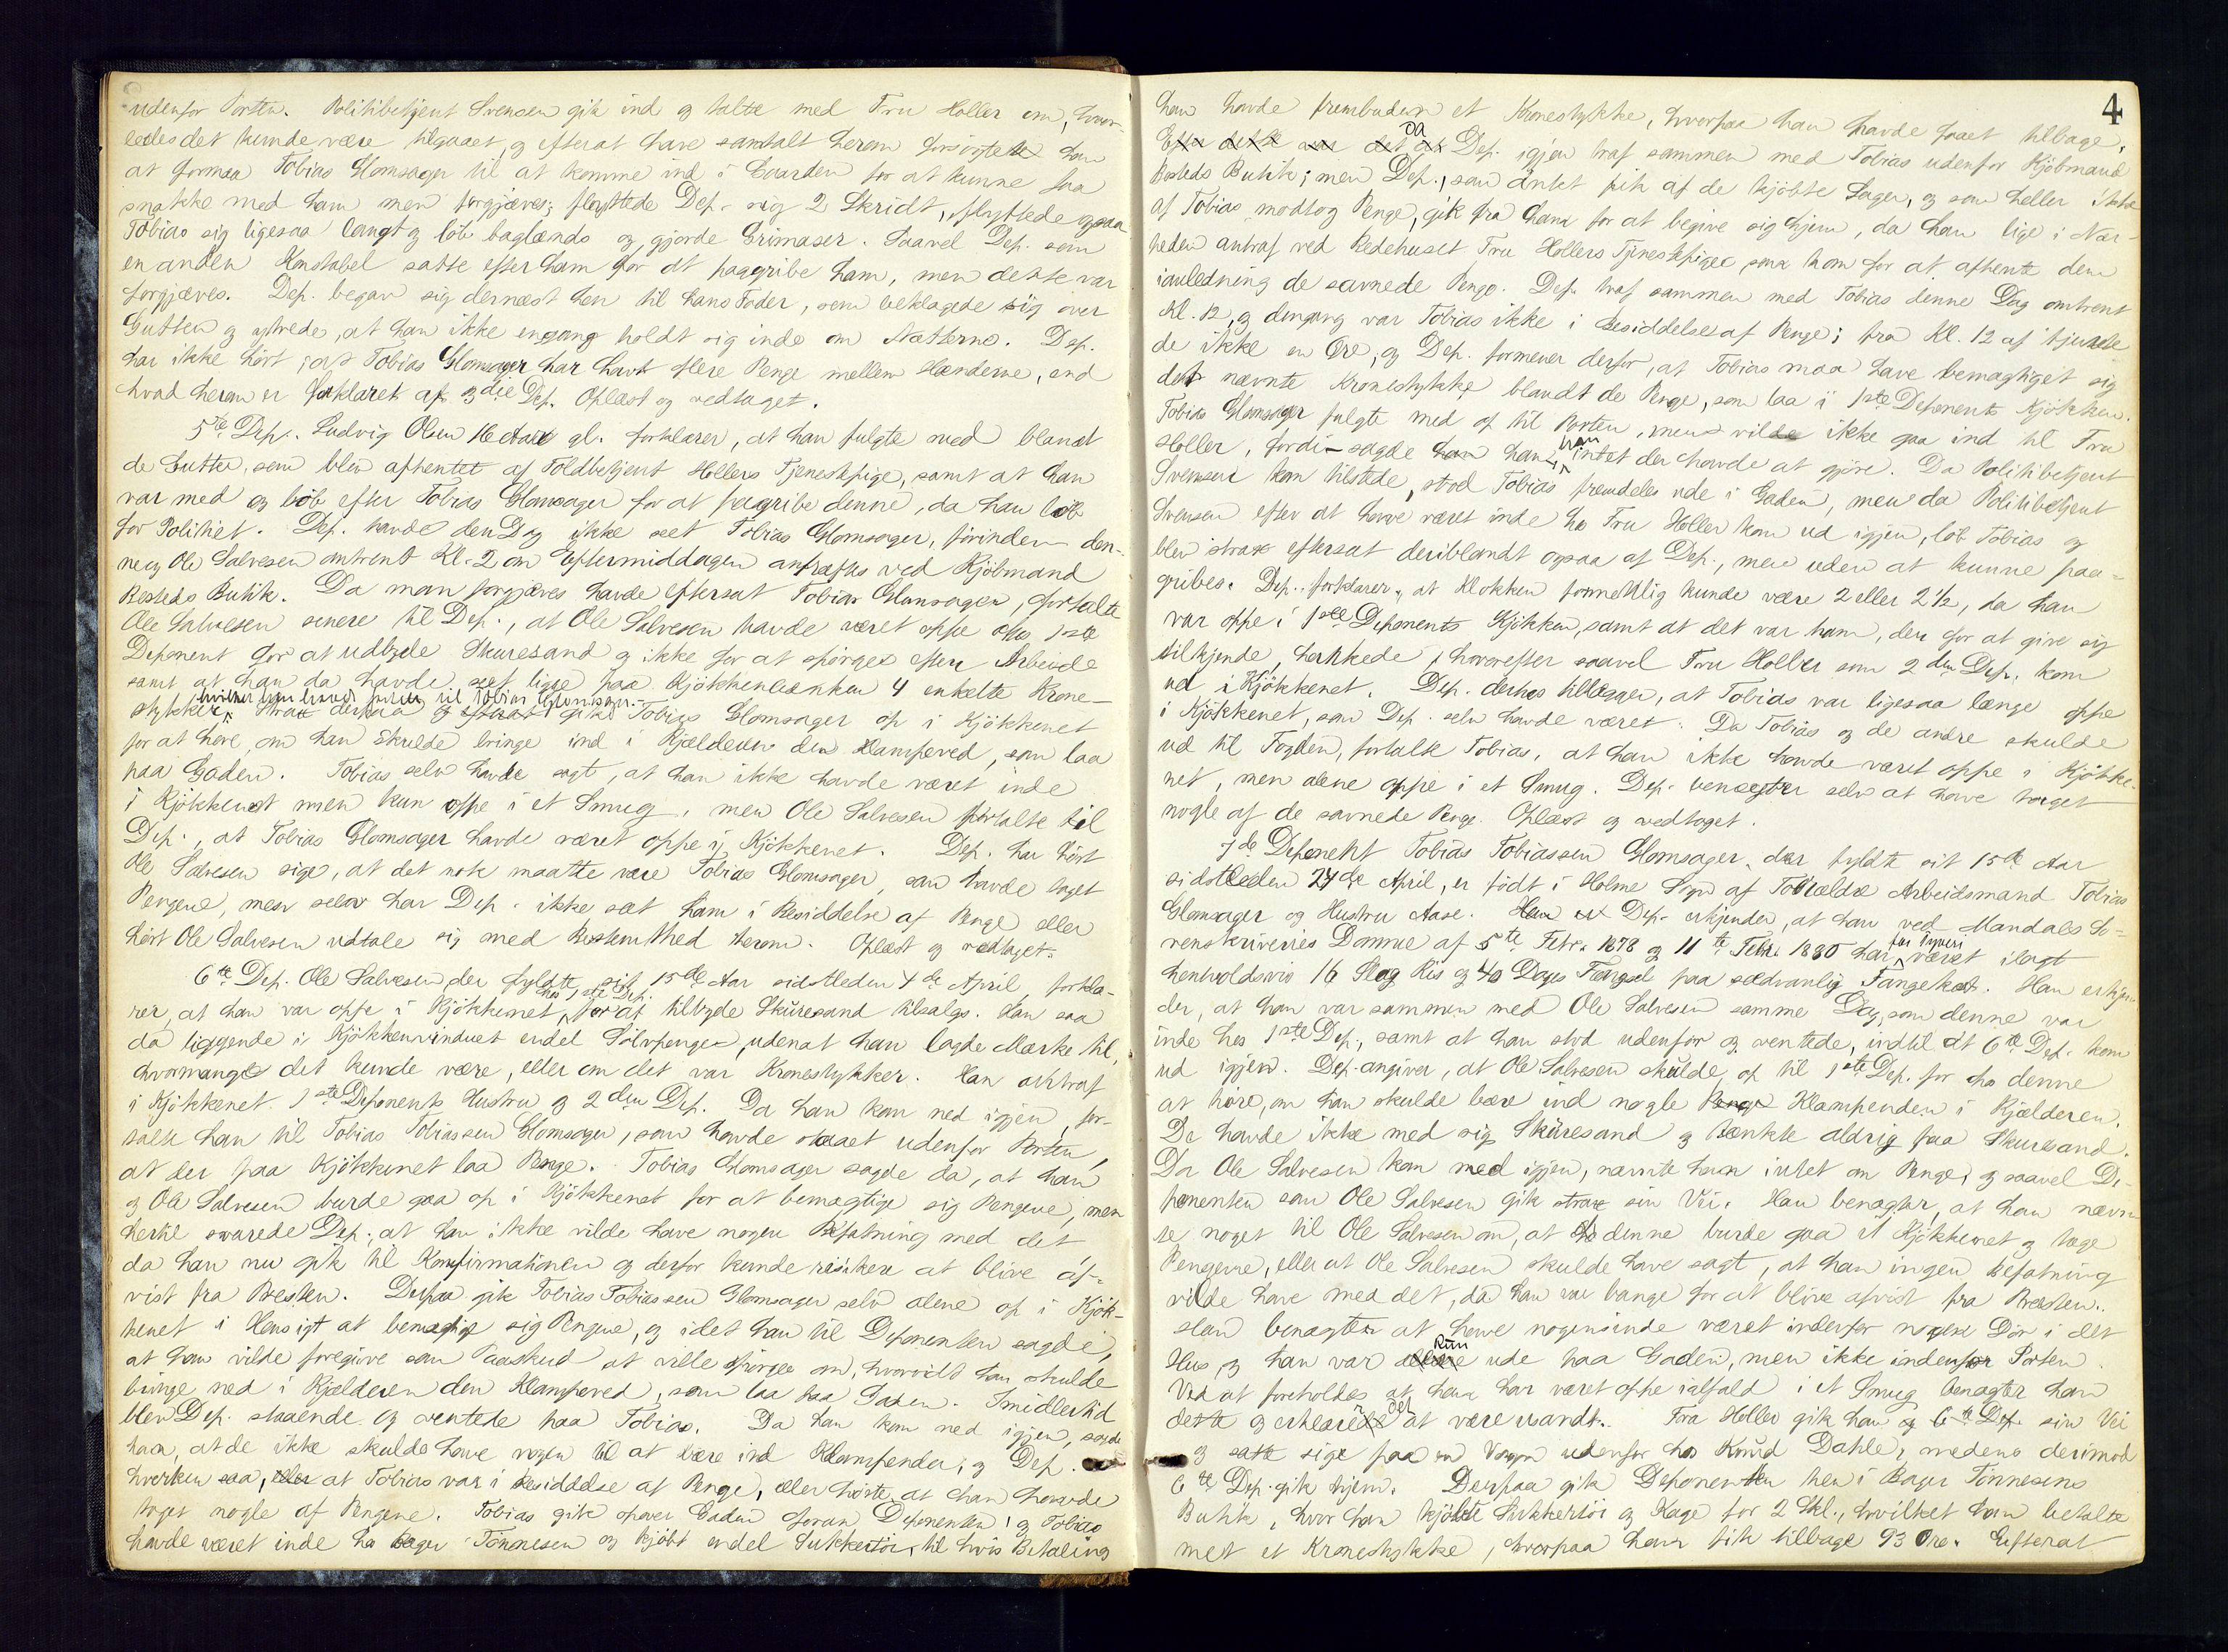 udenfor Porten. Politibetjent Svensen gik ind og talte med Fru Holler om, hvor-
ledes det kunde være tilgaaet, og efterat have samtalt herom forsøgte han
at formaa Tobias Glomsager til at komme ind i Gaarden for at kunne faa
snakke med ham men forgjæves; flyttede Dep. sig 2 Skridt, flyttede ogsaa
Tobias sig ligesaa langt og løb baglænds og gjorde Grimaser. Saavel Dep. som
en anden Konstabel satte efter ham for at paagribe ham, men dette var
forgjæves. Dep. begav sig dernæst hen til hans Fader, som beklagede sig over
Gutten og ytrede, at han ikke engang holdt sig inde om Nætterne. Dep.
har ikke hørt, at Tobias Glomsager har havt flere Penge mellem Hænderne, end
hvad herom er forklaret af 3die Dep. Oplæst og vedtaget.
5te Dep. Ludvig Olsen 16 Aar gl. forklarer, at han fulgte med blandt
de Gutter, som blev afhentet af Toldbetjent Hollers Tjenestpige, samt at han
var med og løb efter Tobias Glomsager for at paagribe denne, da han løb
for Politiet. Dep. havde den Dag ikke seet Tobias Glomsager, førinden den-
ne og Ole Salvesen omtrent Kl. 2 om Eftermiddagen antrafes ved Kjøbmand
Rosteds Butik. Da man forgjæves havde eftersat Tobias Glomsager, fortalte
Ole Salvesen senere til Dep., at Ole Salvesen havde været oppe hos 1ste
Deponent for at udbyde Skuresand og ikke for at spørge efter Arbeide
samt at han da havde seet ligge paa Kjøkkenbænken 4 enkelte Krone-
hvilket han havde fortalt til Tobias Glomsager.
stykker, Strax derpaa gik Tobias Glomsager op i Kjøkkenet
for at høre, om han skulde bringe ind i Kjælderen den Klampeved, som laa
paa Gaden. Tobias selv havde sagt, at han ikke havde været inde
i Kjøkkenet men kun oppe i et Smug, men Ole Salvesen fortalte til
Dep., at Tobias Glomsager havde været oppe i Kjøkkenet. Dep. har hørt
Ole Salvesen sige, at det nok maatte være Tobias Glomsager, som havde taget
Pengene, men selv har Dep. ikke seet ham i Besiddelse af Penge eller
hørt Ole Salvesen udtale sig med Bestemthed herom. Oplæst og vedtaget.
6te Dep. Ole Salvesen, der fyldte sit 15de Aar sidstleden 4de April, forkla-
hos 1ste Dep.
rer, at han var oppe i Kjøkkenet, for at tilbyde Skuresand tilsalgs. Han saa
da liggende i Kjøkkenvinduet endel Sølvpenge, udenat han lagde Mærke til,
hvormange det kunde være, eller om det var Kronestykker. Han antraf
i Kjøkkenet 1ste Deponents Hustru og 2den Dep. Da han kom ned igjen, for-
talte han til Tobias Tobiassen Glomsager, som havde staaet udenfor Porten,
at der paa Kjøkkenet laa Penge. Tobias Glomsager sagde da, at han
og Ole Salvesen burde gaa op i Kjøkkenet for at bemægtige sig Pengene, men
hertil svarede Dep., at han ikke vilde have nogen Befatning med det,
da han nu gik til Konfirmationen og derfor kunde risikere at blive af-
vist fra Presten. Derpaa gik Tobias Tobiassen Glomsager selv alene op i Kjøk-
kenet i Hensigt at bemægtige sig Pengene, og idet han til Deponenten sagde,
at han vilde foregive som Paaskud at ville spørge om, hvorvidt han skulde
bringe ned i Kjælderen den Klampeved, som laa paa Gaden. Imidlertid
blev Dep. staaende og ventede paa Tobias. Da han kom ned igjen, sagde
han, at de ikke skulde have nogen til at bære ind Klampender, og Dep.
hverken saa, at Tobias var i Besiddelse af Penge, eller hørte, at han havde
taget nogle af Pengene. Tobias gik opover Gaden foran Deponenten, og Tobias
havde været inde hos Bager Tønnesen og kjøbt endel Sukkertøi, til hvis Betaling
4
han havde frembuden et Kronestykke, hvorpaa han havde faaet tilbage.
da
Efter dette var det at Dep. igjen traf sammen med Tobias udenfor Kjøbmand
Rosteds Butik; men Dep., som intet fik af de kjøbte Sager, og som heller ikke
af Tobias modtog Penge, gik fra ham for at begive sig hjem, da han lige i Nær-
heden antraf ved Redehuset Fru Hollers Tjenestpige, som kom for at afhente dem
ianledning de savnede Penge. Dep. traf sammen med Tobias denne Dag omtrent
Kl. 12, og dengang var Tobias ikke i Besiddelse af Penge; fra Kl. 12 af
de ikke en Øre, og Dep. formener derfor, at Tobias maa have bemægtiget sig
det nævnte Kronestykke blandt de Penge, som laa i 1ste Deponents Kjøkken.
Tobias Glomsager fulgte med op til Porten, men vilde ikke gaa ind til Fru
han
Holler, fordi – sagde han – intet der havde at gjøre. Da Politibetjent
Svensen kom tilstede, stod Tobias fremdeles ude i Gaden, men da Politibetjent
Svensen efter at have været inde hos Fru Holler kom ud igjen, løb Tobias og
blev strax eftersat deriblandt ogsaa af Dep., men uden at kunne paa-
gribes. Dep. forklarer, at Klokken formentlig kunde være 2 eller 2½, da han
var oppe i 1ste Deponents Kjøkken, samt at det var ham, der for at give sig
tilkjende, harkede, hvorefter saavel Fru Holler som 2den Dep. kom
ud i Kjøkkenet. Dep. derhos tillægger, at Tobias var ligesaa længe oppe
i Kjøkkenet, som Dep. selv havde været. Da Tobias og de andre skulde
ud til Fogden, fortalte Tobias, at han ikke havde været oppe i Kjøkke-
net, men alene oppe i et Smug. Dep. benægter selv at have taget
nogle af de savnede Penge. Oplæst og vedtaget.
7de Deponent Tobias Tobiassen Glomsager, der fyldte sit 15de Aar
sidstleden 24de April, er født i Holme Sogn af Forældre Arbeidsmand Tobias
Glomsager og Hustru Aase. Dep. erkjender, at han ved Mandals So-
renskriveries Domme af 5te Febr. 1878 og 11te Febr. 1880 har
for Tyveri
været ilagt
henholdsvis 16 Slag Ris og 40 Dages Fængsel paa sædvanlig Fangekost. Han erkjen-
der, at han var sammen med Ole Salvesen samme Dag, som denne var
inde hos 1ste Dep., samt at han stod udenfor og ventede, indtil at 6te Dep. kom
ud igjen. Dep. angiver, at Ole Salvesen skulde op til 1ste Dep. for hos denne
at høre, om han skulde bære ind nogle Penge Klampender i Kjælderen.
De havde ikke med sig Skuresand og tænkte aldrig paa Skuresand.
Da Ole Salvesen kom ned igjen, nævnte han intet om Penge, og saavel De-
ponenten som Ole Salvesen gik strax sin Vei. Han benægter, at han nævn-
te noget til Ole Salvesen om, at denne burde gaa i Kjøkkenet og tage
Pengene, eller at Ole Salvesen skulde have sagt, at han ingen Befatning
vilde have med det, da han var bange for at blive afvist fra Præsten.
Han benægter at have nogensinde været indenfor nogen Dør i det
kun
Hus, og han var ude paa Gaden, men ikke indenfor Porten.
Ved at foreholdes at han har været oppe ialfald i et Smug benægter han
det
dette og erklærer at være usandt. Fra Holler gik han og 6te Dep. sin Vei
og satte sig paa en Vogn udenfor hos Knud Dahle, medens derimod
6te Dep. gik hjem. Derpaa gik Deponenten hen i Bager Tønnesens
Butik, hvor han kjøbte Sukkertøi og Kage for 2 Skl., hvilket han betalte
met et Kronestykke, hvorpaa han fik tilbage 93 Øre. Efterat